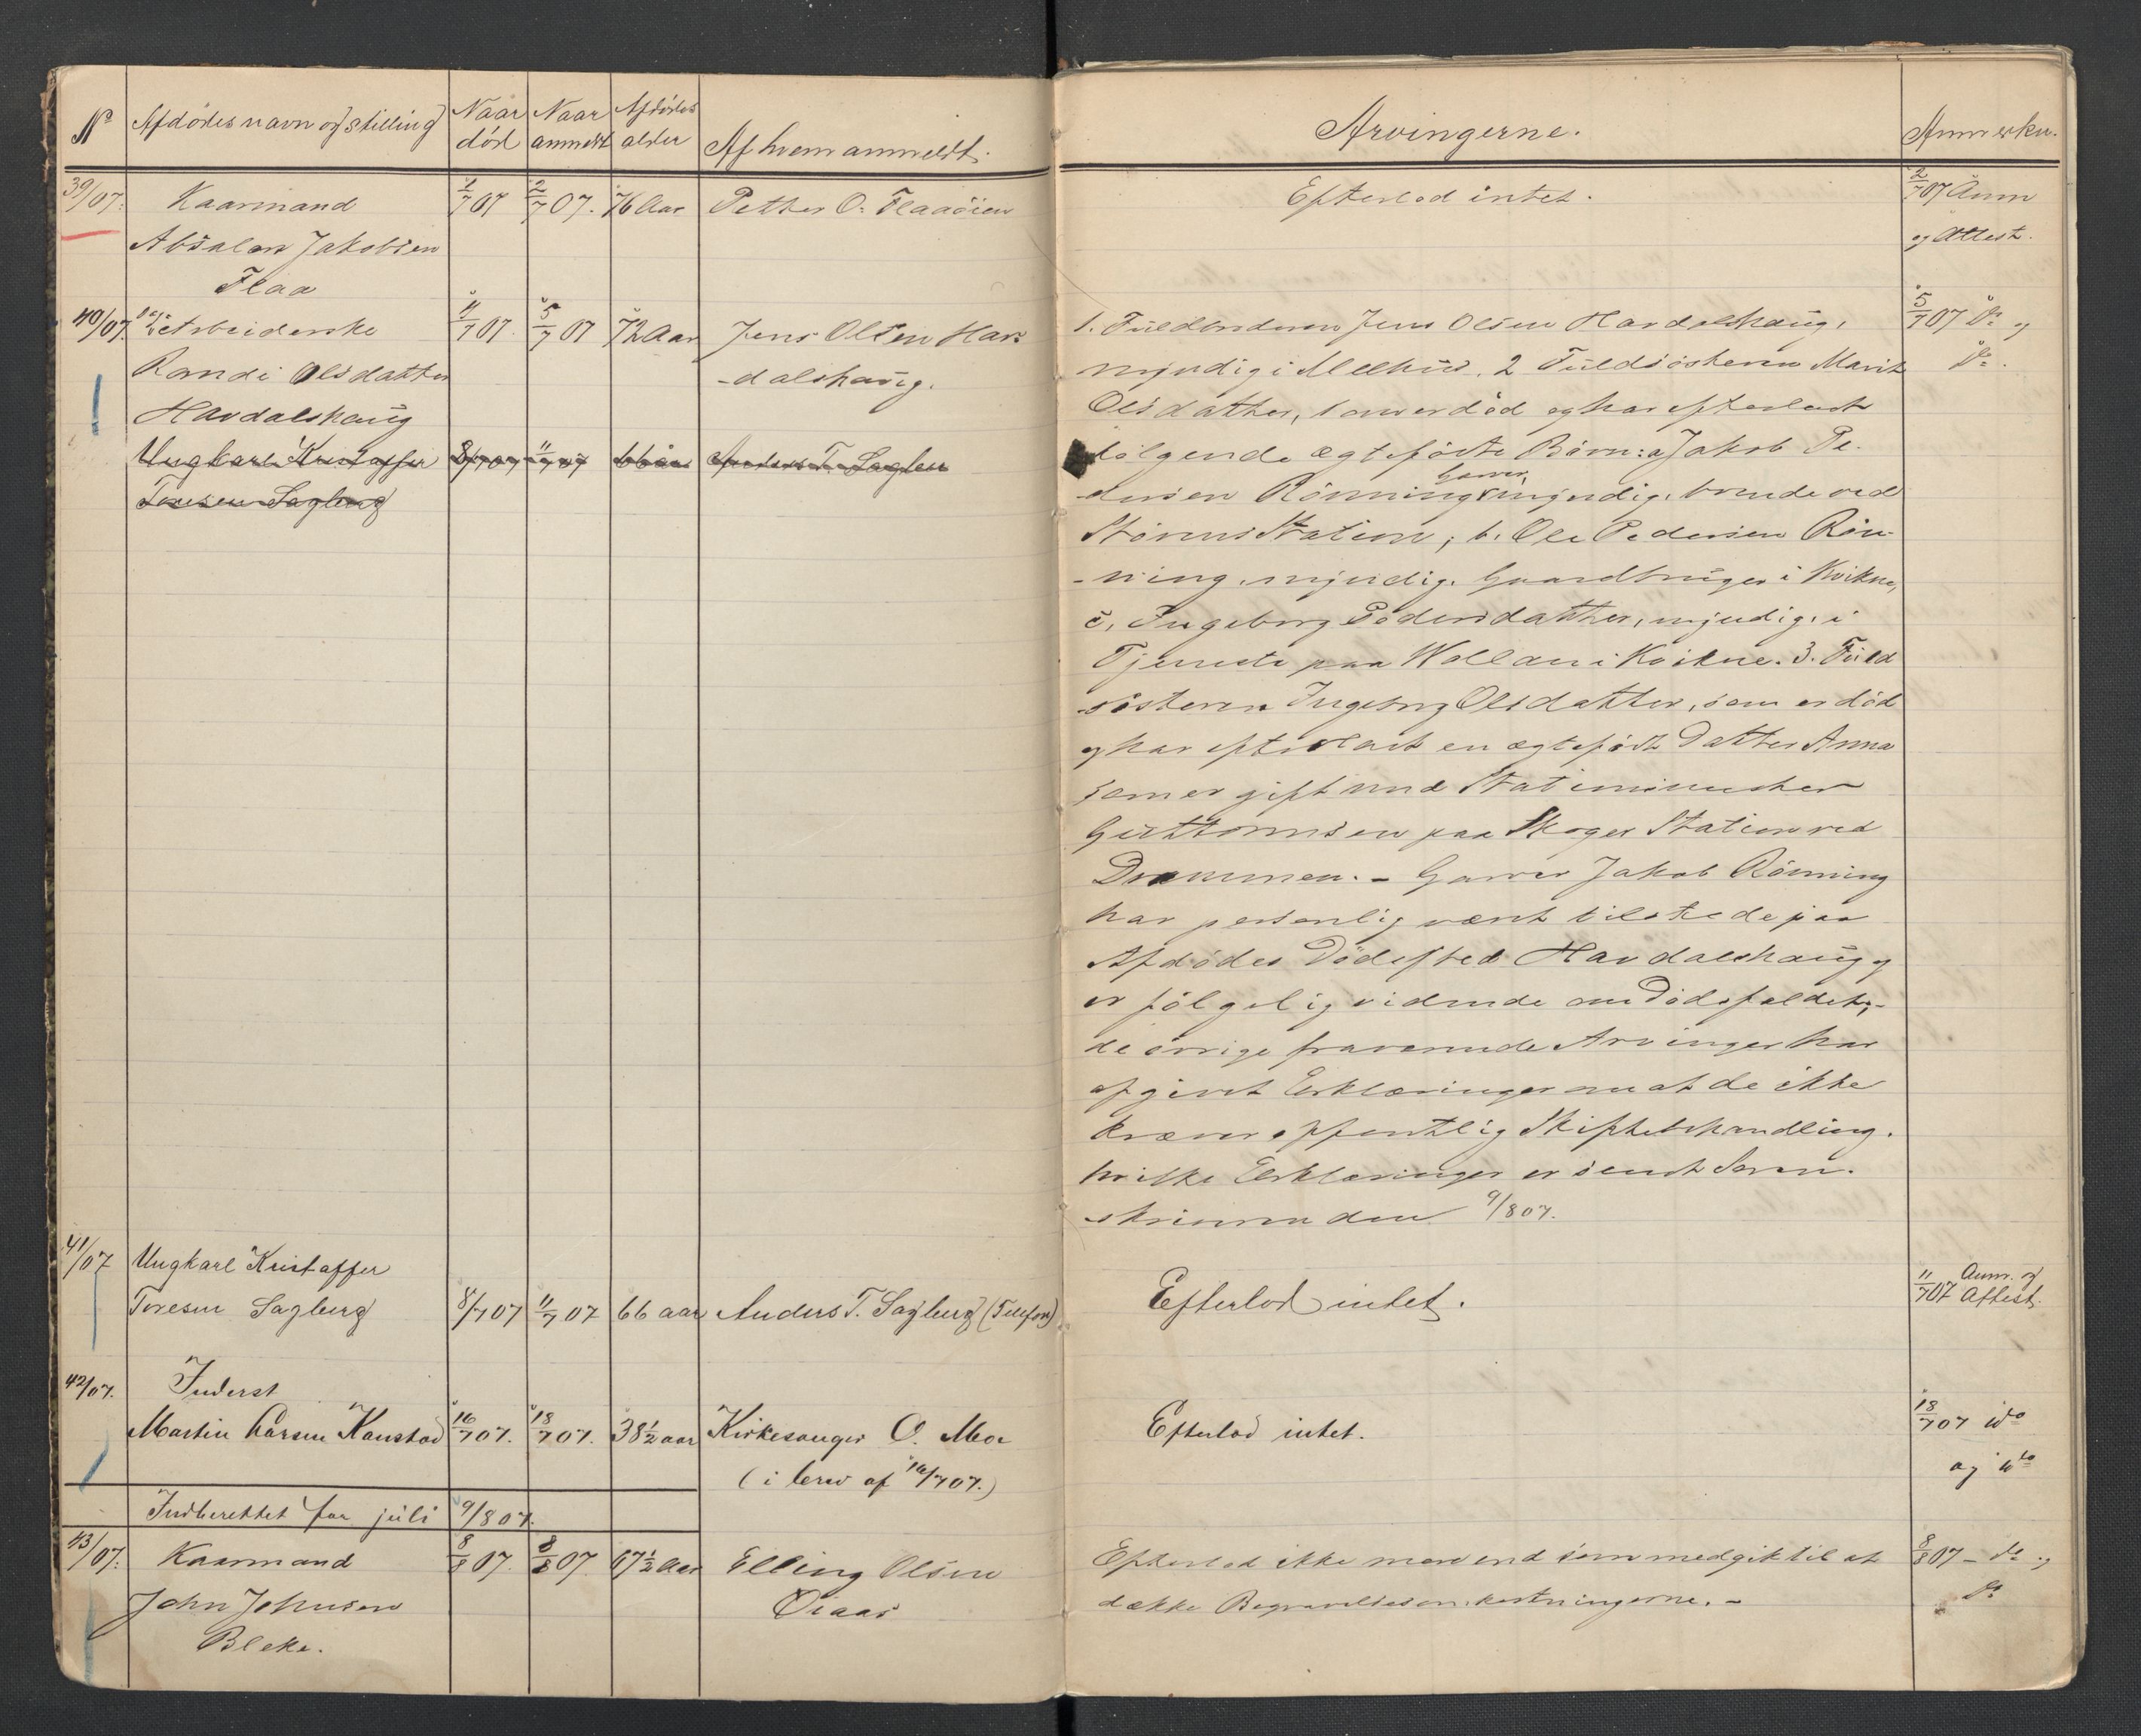 No Afdødes navn og stilling Naar død Naar anmeldt Afdødes alder Af hvem anmeldt.
39/07. Kaarmand 1/7 07 2/7 07. 76 Aar Petter O. Flaaöien
Absalon Jakobsen
Flaa
40/07. Arbeiderske 4/7 07. 5/7 07 72 Aar Jens Olsen Hav
Randi Olsdatter -dalshaug.
Havdalshaug
Ungkarl Kristoffer 8/7 07 11/7 07 66 aar Anders T. Sagberg
Toresen Sagberg
41/07 Ungkarl Kristoffer
Toresen Sagberg 8/7 07 11/7 07 66 aar Anders T. Sagberg (Telefon)
42/07. Inderst
Martin Larsen Kanstad 16/7 07. 18/7 07. 38 1/2 aar Kirkesanger O. Mo
(i brev af 16/7 07.)
Indberettet for juli 9/8 07.
43/07. Kaarmand 8/8 07. 8/8 07. 67 1/2 Aar Elling Olsen
John Johnsen Øiaas
Bleke.
Arvingerne. Anmerkn.
Efterlod intet. 2/7 07 Anm
og Attest.
1. Fuldbroderen Jens Olsen Havdalshaug, 5/7 07 Do og
myndig i Melhus. 2 Fuldsösteren Marit Do.
Olsdatter, som er død og har efterladt
følgende ægtefödte Börn: a Jakob Pe-
dersen Rönning, Garver, myndig, boende ved
Störens Station; b. Ole Pedersen Rön-
-ning, myndig, Gaardbruger i Kvikne,
c. Ingeborg Pedersdatter, myndig, i
Tjeneste paa Wollan i Kvikne. 3. Fuld
sösteren Ingeborg Olsdatter, som er död
og har efterladt en ægtefödt Datter Anna
som er gift med Stationsmester
Guttormsen paa Skoger Station ved
Drammen. - Garver Jakob Rönning
har personlig været tilstede paa
Afdødes Dödssted Havdalshaug og
er fölgelig vidende om Dödsfaldet, -
de övrige fraværende Arvinger har
afgivet Erklæringer om at de ikke
kræver offentlig Skiftebehandling.
hvilke Erklæringer er sendt Soren-
skriveren den 9/8 07.
Efterlod intet. 11/7 07 Anm. og Attest.
Efterlod intet. 18/7 07 ido
og ido
Efterlod ikke mere end som medgik til at 8/8 07 - do og
dække Begravelsesomkostningerne. - do